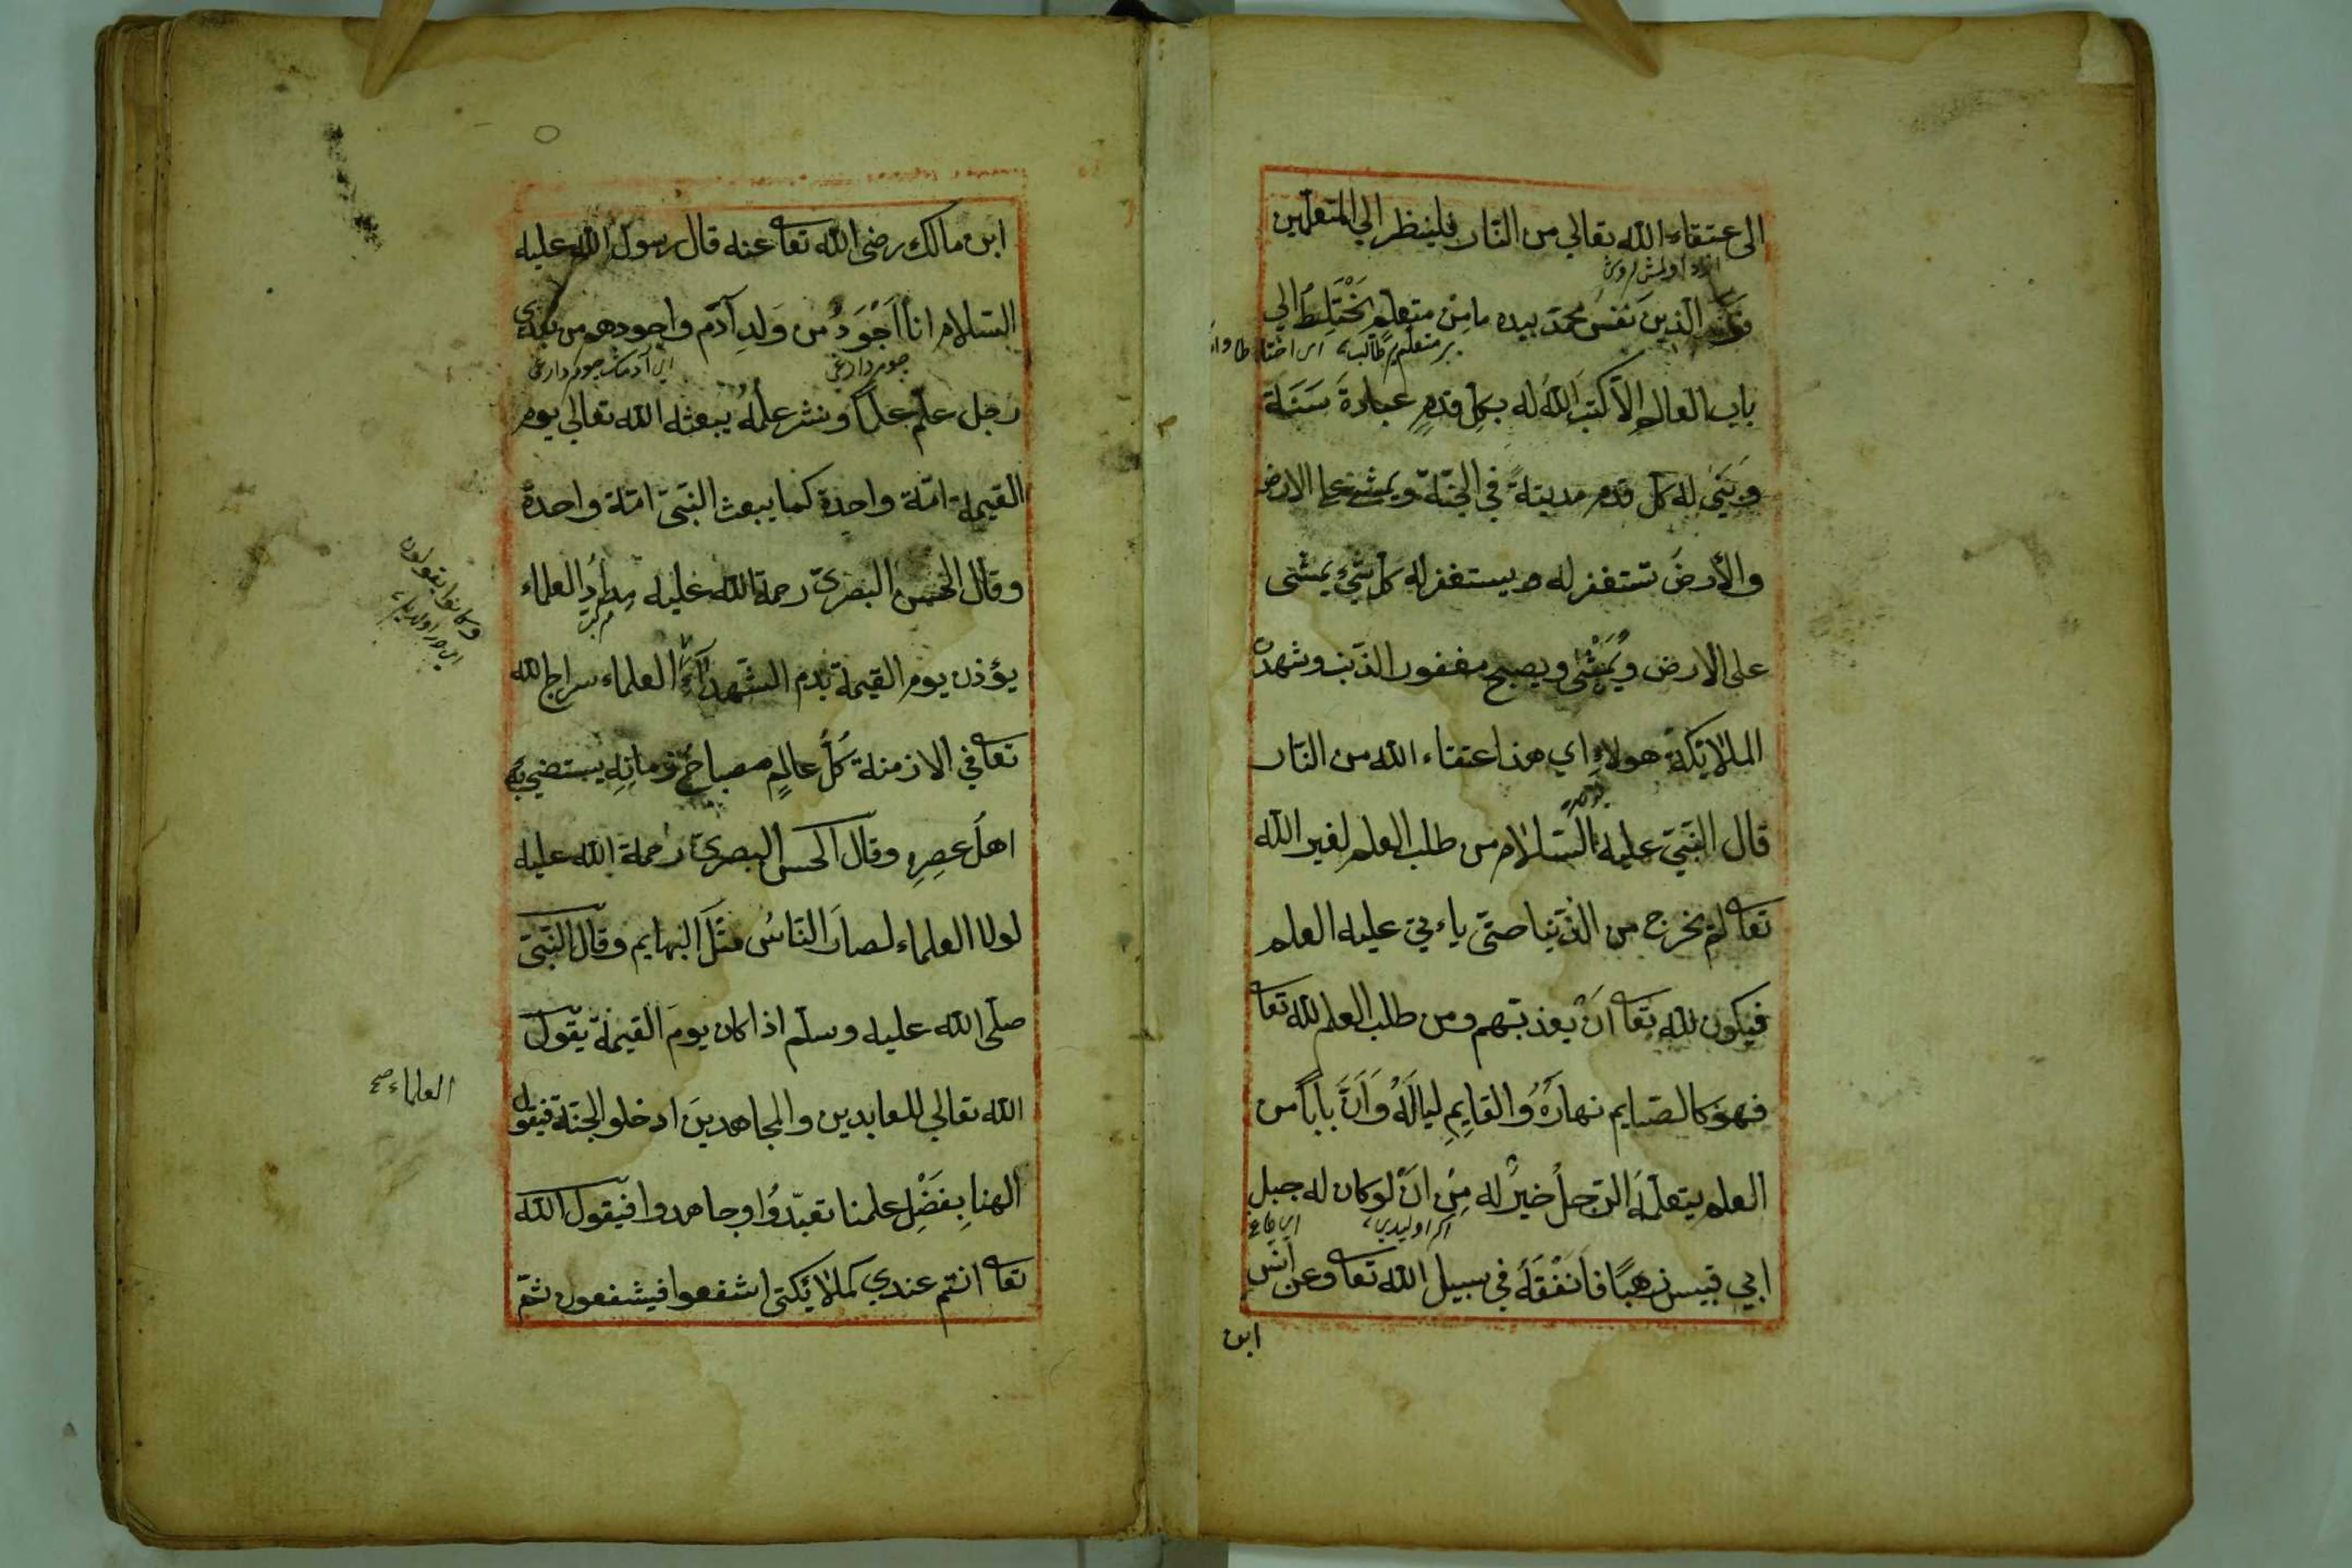 الى عتقاء الله تعالي من النّار فلينظر الي المتعلّمين
الذين نفسُ محمّد بيده ما مِنْ متعلّمٍ يَخْتَلِطُ الي
باب العالم الاّ كتبَ اللّٰهُ له بكلّ قدمٍ عبادةَ سَنَة
ويَبْنيٰ له كلّ قدم مدينةً في الجنّة ويمشي علي الارض
والأرضَ تستغفر له ويستغفر له كلّ شيءٍ يمشى
على الارض ويُمْسْى ويصبح مغفور الذّنب وشهدتْ
الملائكة هولاءِ اي هذا عتقاء الله من النّار
قال النّبيّ عليه السّلام من طلب العلم لغير الله
تعا لم يخرج من الدّنيا حتّى ياءتيَ عليه العلم
فيكون للّه تعا انْ يعذبهم ومن طلب العلم للّه تعا
فهو كالصّايم نهارَهُ والقايِمِ ليالَهُ وَانَّ باباً من
العلم يتعلّمُهُ الرّجلُ خيرٌ له مِنْ انْ لو كان له جبل
ابي قبيس ذهبًا فأنفقَهُ في سبيل اللّه تعا وعن أنس
ابن
ابن مالك رضى اللّه تعا عنه قال رسول اللّه عليه
السّلام انا اَجْوَدُ من وَلَدِ آدَم واجودهم من بعدى
رجل علّم علمًا ونشر علمُهُ يبعثه اللّه تعالي يوم
القيمة امّة واحدة كما يبعث النّبيّ امّة واحدة
وقال الحسن البصريّ رحمة اللّه عليه مِدادُ العلماء
يؤذن يوم القيمة بدم الشّهدآءِ العلماء سراج اللّه
تعا في الازمنة كُلّ عالمٍ مصباحُ زمانِهِ يستضيءُ به
اهلُ عصرِهِ وقال الحسن البصريّ رحمة اللّه عليه
لولا العلماء لصار النّاسُ مثلَ البهايم وقال النّبيّ
صلّى اللّه عليه وسلّم اذا كان يومَ القيمة يقول
اللّه تعالي للعابدين والمجاهدينَ ادخلو الجنّة فيقول
العلماء صح
الهنا بِفَضْلِ علمنا تعبّدُوا وجاهدوا فيقول اللّه
تعا انتم عندي كملائكتى اشفعوا فيشفعون ثمّ
وكانوا يقولون